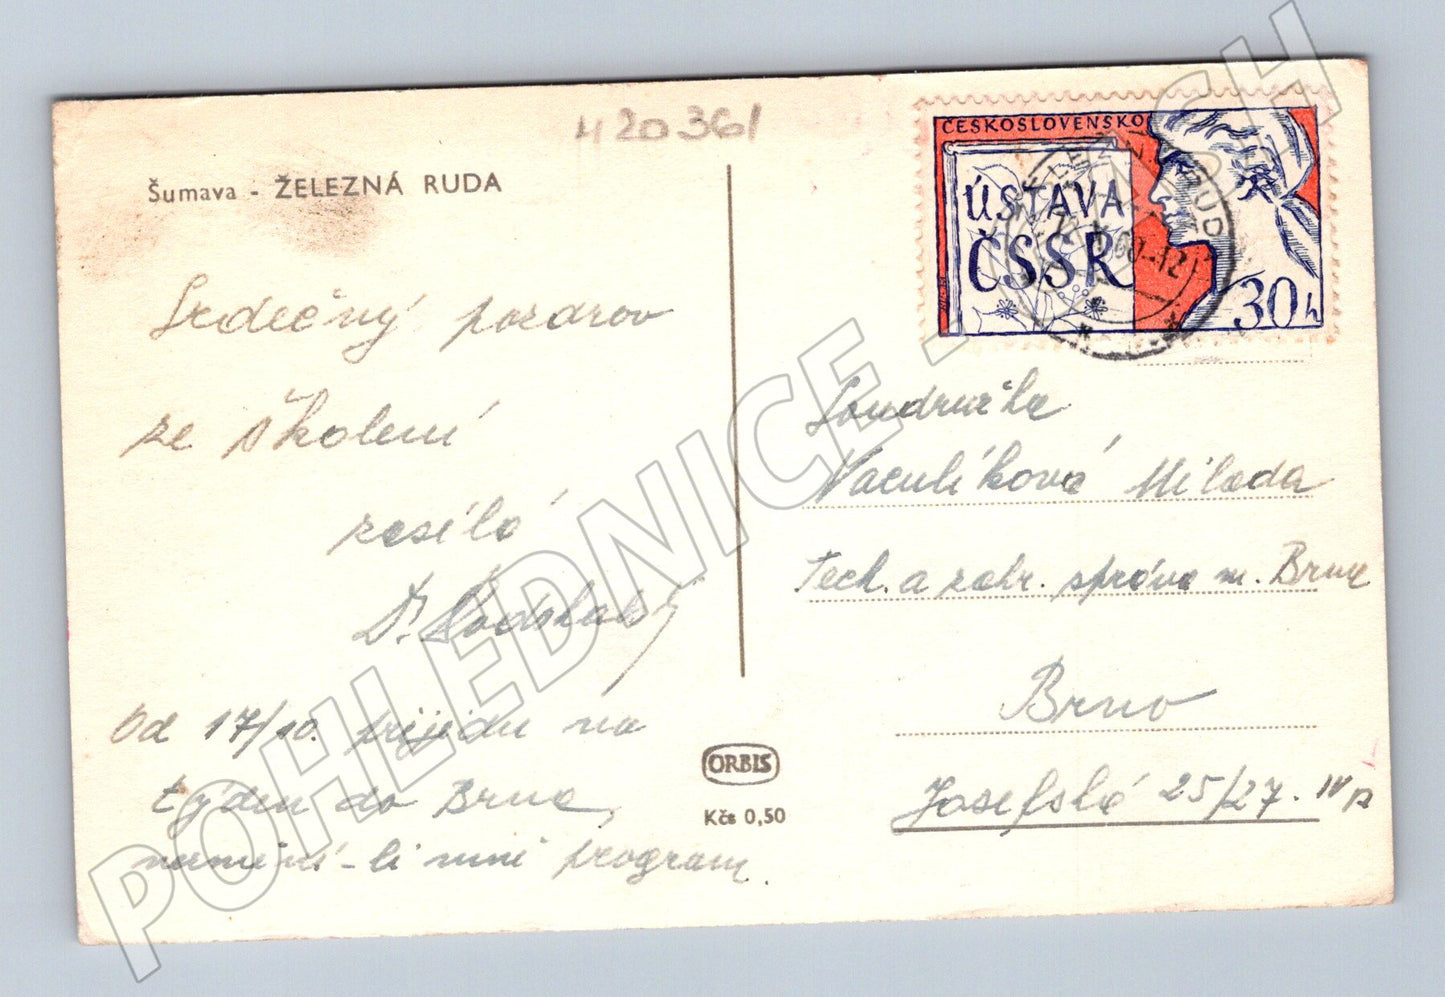 420361
Šumava - ŽELEZNÁ RUDA
Srdečný pozdrav
ze školení
zasílá
Od 17/10. přijedu na
týden do Brna,
nezmění-li mně program.
ORBIS
Kčs 0,50
ČESKOSLOVENSKO
ÚSTAVA
ČSSR
30h
ŽELEZNÁ RUDA
60-12
Soudružka
Vaculíková Milada
Tech. a zahr. správa m. Brna
Brno
Josefská 25/27. IV p
POHLEDNICE